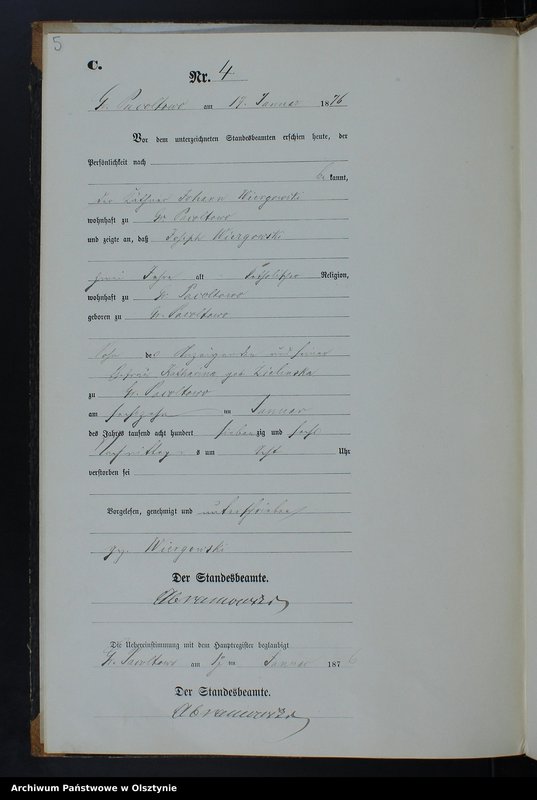 5
C.
Nr. 4
Gr. Pacoltowo am 17. Januar 1876
Vor dem unterzeichneten Standesbeamten erschien heute, der
Persönlichkeit nach
be kannt,
der Käthner Johann Wiergowski
wohnhaft zu Gr. Pacoltowo
und zeigte an, daß Joseph Wiergowski
zwei Jahre alt katholischer Religion,
wohnhaft zu Gr. Pacoltowo
geboren zu Gr. Pacoltowo
Sohn des Anzeigenden und seiner
Ehefrau Katharina geb. Zielinska
zu Gr. Pacoltowo
am sechszehn ten Januar
des Jahres tausend acht hundert siebenzig und sechs
Nachmittags um acht Uhr
verstorben sei
Vorgelesen, genehmigt und unterschrieben
gez. Wiergowski
Der Standesbeamte.
Abramowski
Die Uebereinstimmung mit dem Hauptregister beglaubigt
Gr. Pacoltowo am 17 ten Januar 1876
Der Standesbeamte.
Abramowski
Archiwum Państwowe w Olsztynie